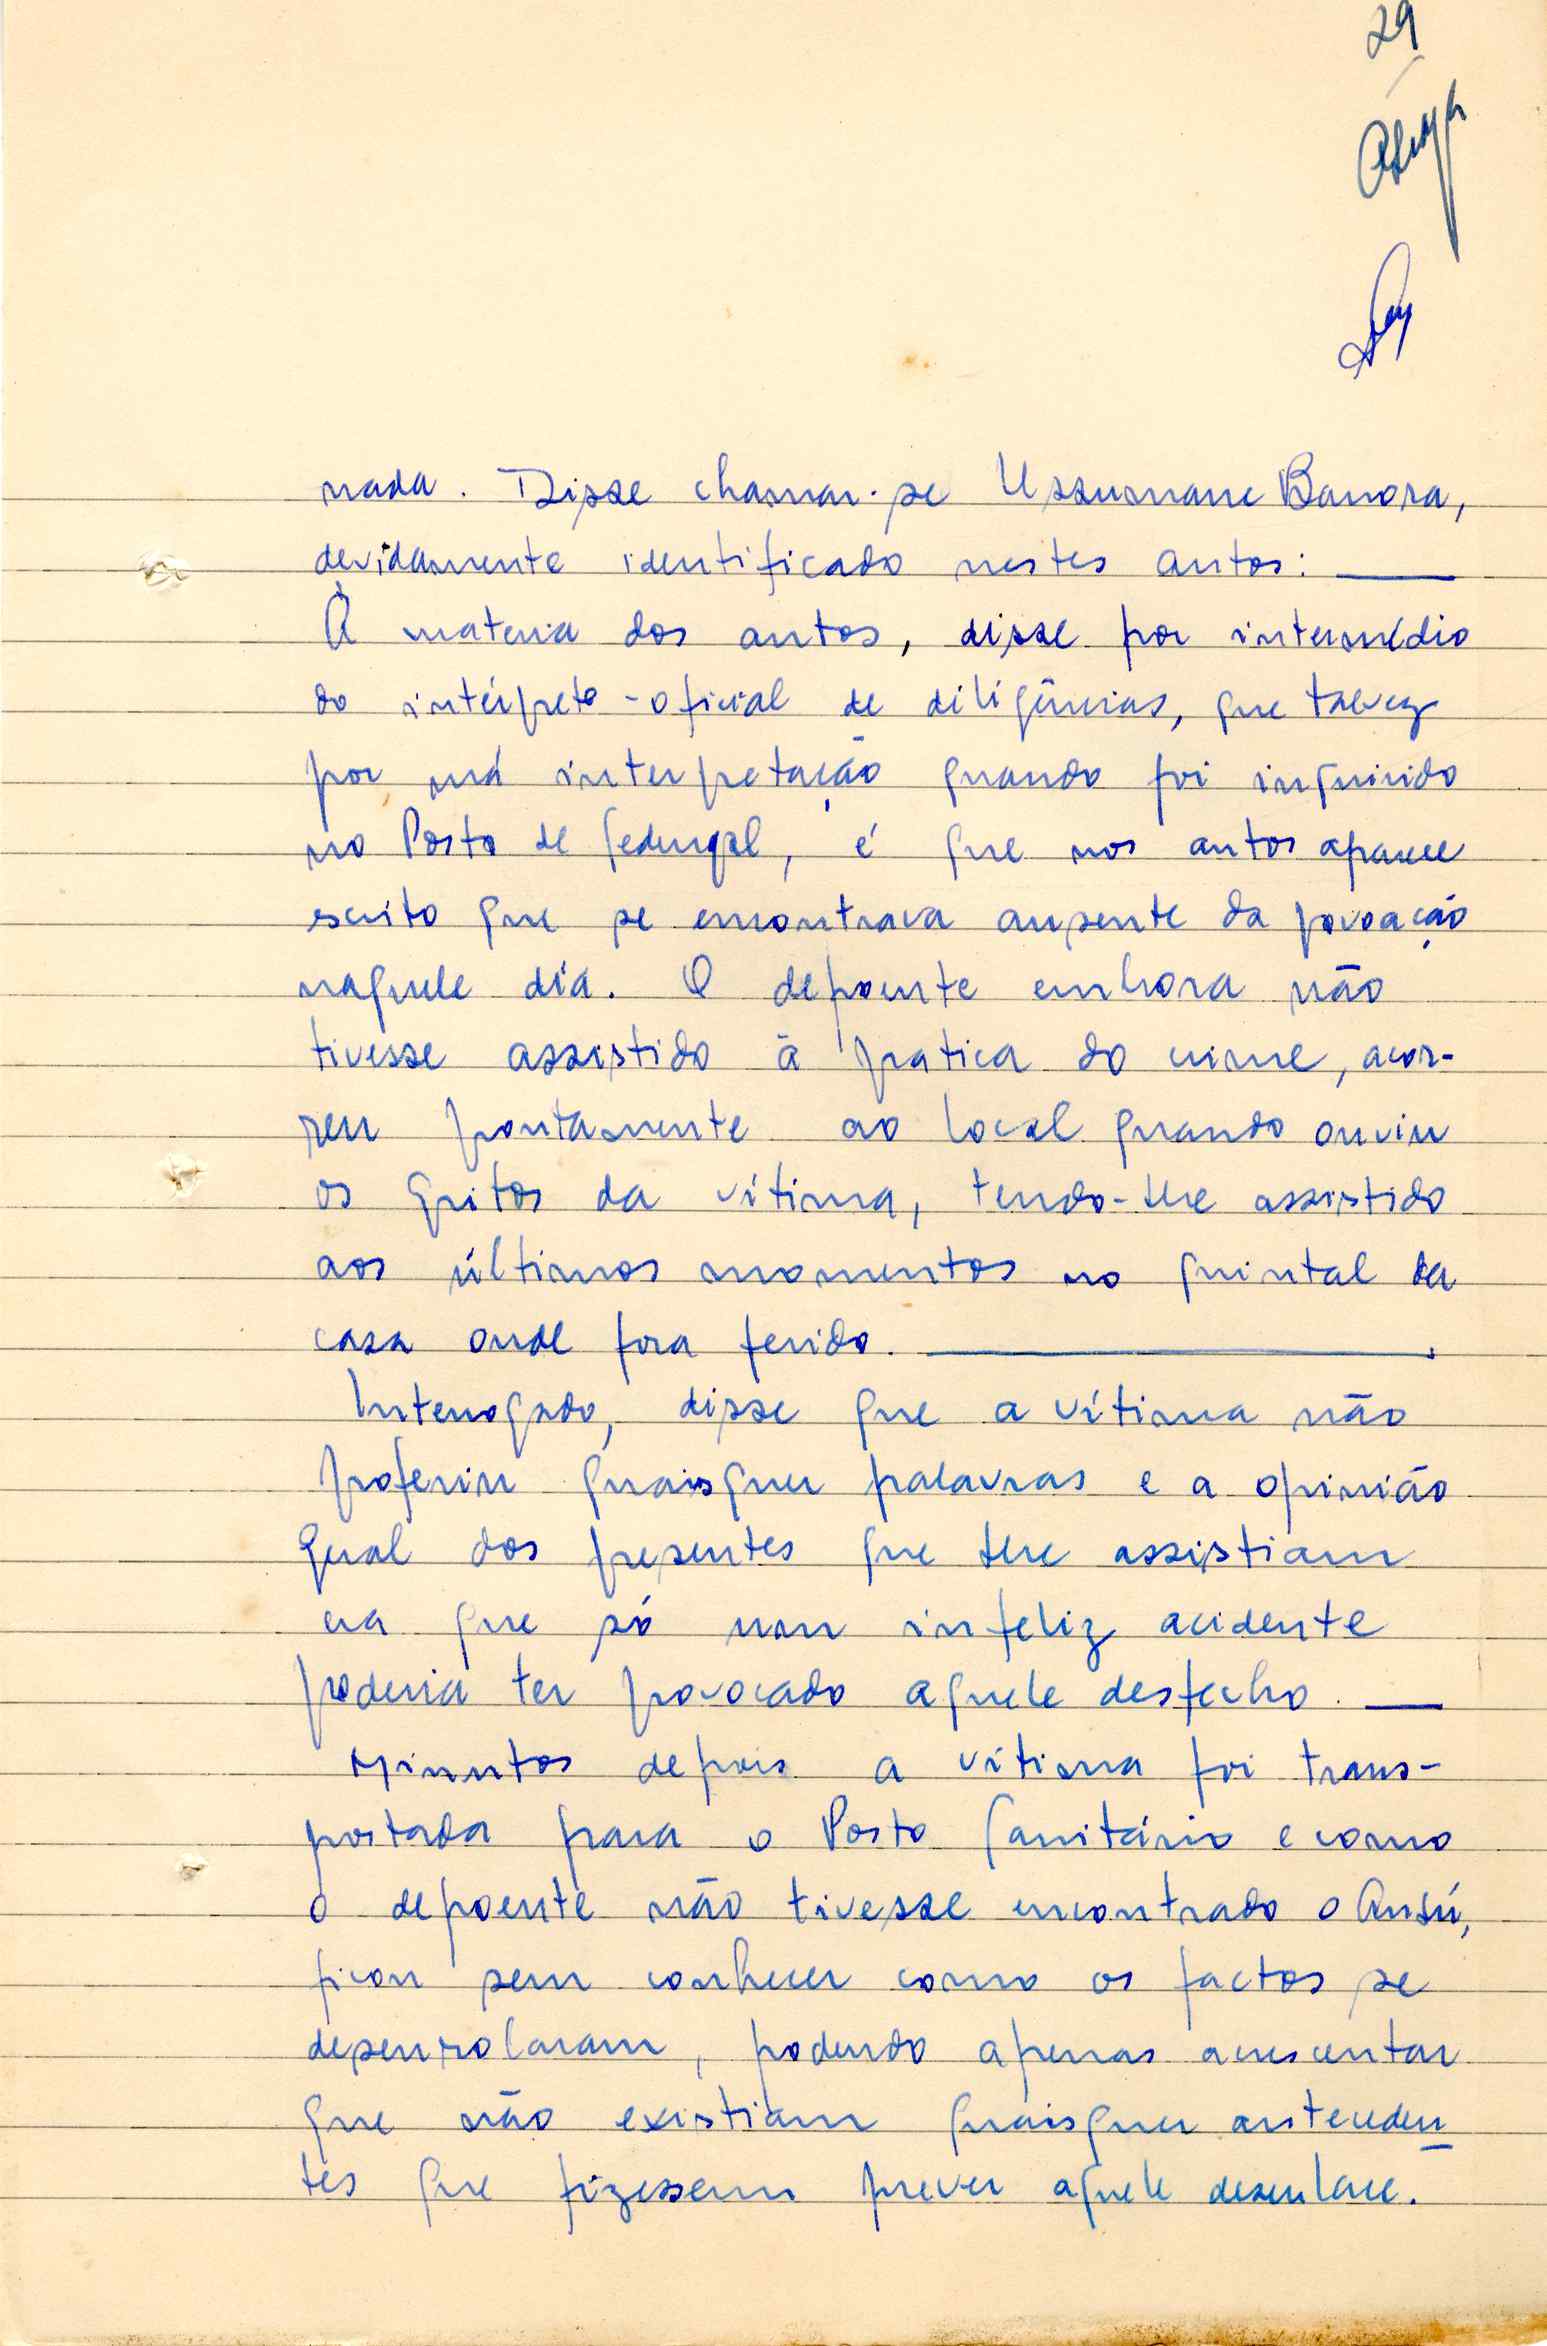 29
nada. Disse chamar-se Ussumane Banora,
devidamente identificado nestes autos:
À materia dos autos, disse por intermédio
do intérprete-oficial de diligências, que talvez
por má interpretação quando foi inquirido
no Posto de, é que nos autos aparece
escrito que se encontrava ausente da povoação
naquele dia. O depoente embora não
tivesse assistido à pratica do crime, acor-
reu prontamente ao local quando ouviu
os gritos da vítima, tendo-lhe assistido
aos últimos momentos no quintal da
casa onde fora ferido.
Interrogado, disse que a vítima não
proferiu quaisquer palavras e a opinião
geral dos presentes que lhe assistiam
era que só um infeliz acidente
poderia ter provocado aquele desfecho.
Minutos depois a vítima foi trans-
portada para o Posto Sanitário e como
o depoente não tivesse encontrado o Ansú,
ficou sem conhecer como os factos se
desenrolaram, podendo apenas acrescentar
que não existiam quaisquer anteceden
tes que fizessem prever aquele desenlace.